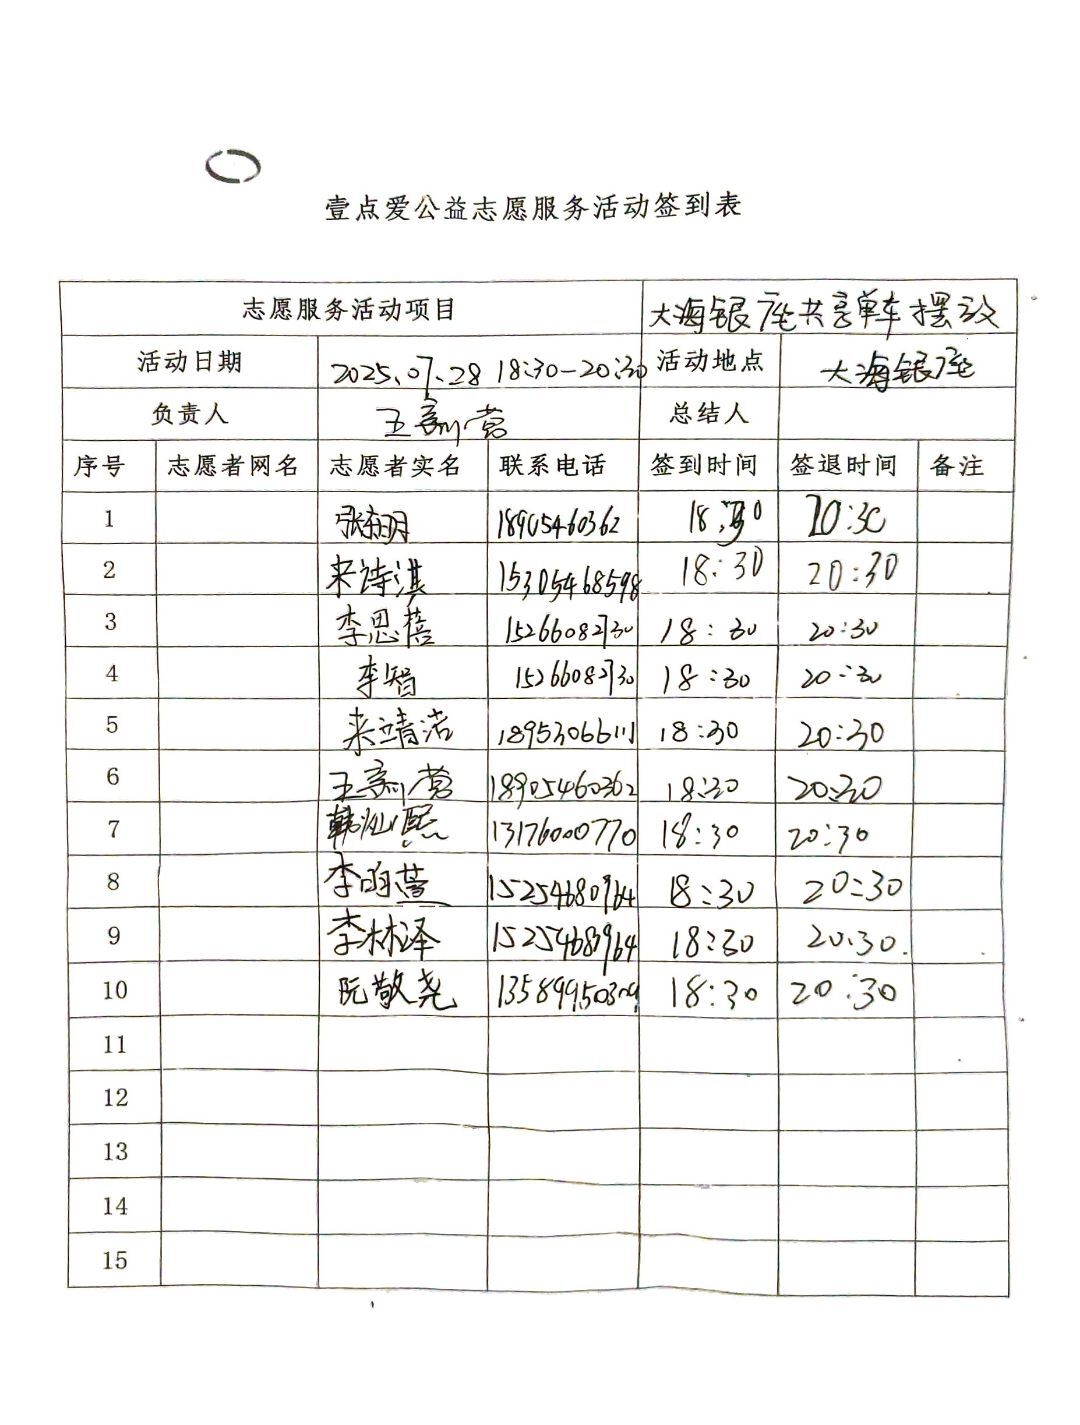 壹点爱公益志愿服务活动签到表
志愿服务活动项目 大海银座共享单车摆放
活动日期 2025.07.28 18:30-20:30 活动地点 大海银座
负责人 王新营 总结人
序号 志愿者网名 志愿者实名 联系电话 签到时间 签退时间 备注
1 18905460362 18:30 20:30
2 来诗淇 15305468598 18:30 20:30
3 李思蓓 15266082730 18:30 20:30
4 李智 15266082730 18:30 20:30
5 来靖洁 18953066111 18:30 20:30
6 王新营 18905460362 18:30 20:30
7 韩灿熙 13176000770 18:30 20:30
8 李明萱 15254680964 18:30 20:30
9 李林泽 18:30 20:30.
10 阮敬尧 18:30 20:30
11
12
13
14
15